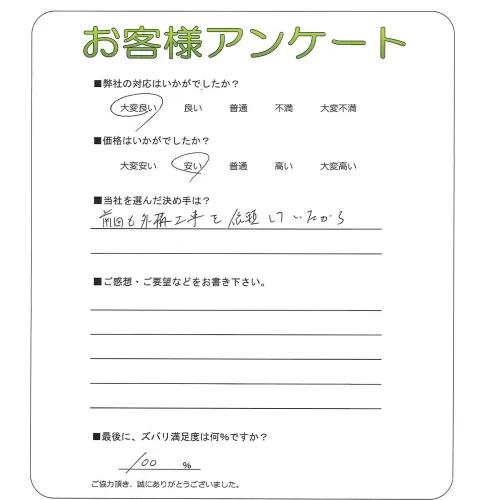 お客様アンケート
■弊社の対応はいかがでしたか?
大変良い 良い 普通 不満 大変不満
■価格はいかがでしたか?
大変安い 安い 普通 高い 大変高い
■当社を選んだ決め手は?
前回も外構工事を依頼していたから
■ご感想・ご要望などをお書き下さい。
■最後に、ズバリ満足度は何%ですか?
100 %
ご協力頂き、誠にありがとうございました。